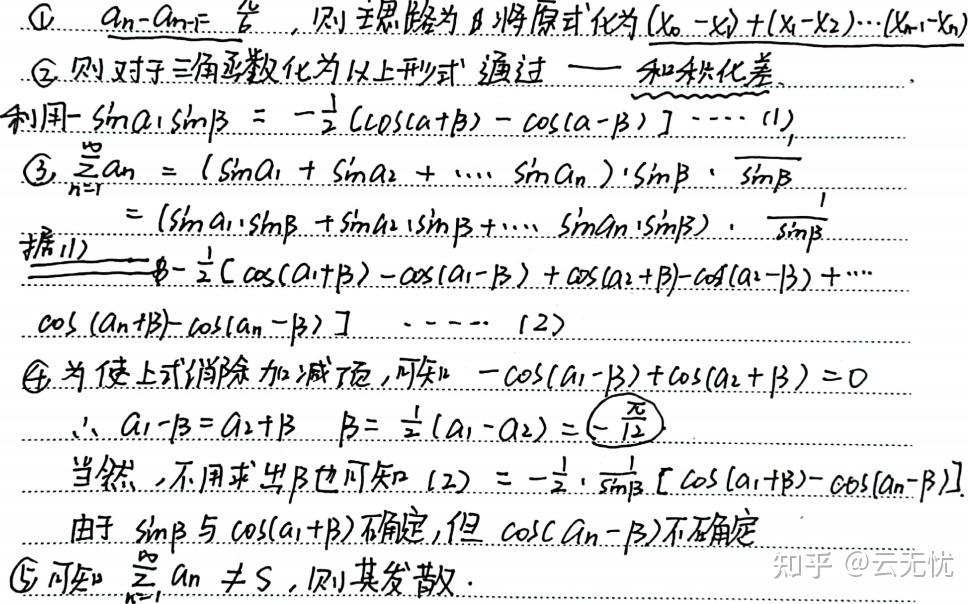 ① an-an-1= π/6 ，则主思路为将原式化为(x0-x1)+(x1-x2)…(xn-1-xn)
② 则对于三角函数化为以上形式通过 —— 和积化差.
利用- sina1sinβ = -1/2 [cos(a+β) - cos(a-β)] ····· (1)
③ ∞∑n=1 an = (sina1 + sina2 + ···· sinan)·sinβ · 1/sinβ
= (sina1·sinβ + sina2·sinβ + ···· sinan·sinβ) · 1/sinβ
据(1) - 1/2 [cos(a1+β) - cos(a1-β) + cos(a2+β)-cos(a2-β)+····
cos(an+β)-cos(an-β)] ····· (2)
④ 为使上式消除加减项,可知 -cos(a1-β)+cos(a2+β)=0
∴ a1-β=a2+β β= 1/2(a1-a2)= -π/12
当然,不用求出β也可知(2) = -1/2 · 1/sinβ [cos(a1+β)-cos(an-β)].
由于 sinβ与cos(a1+β)确定,但 cos(an-β)不确定
⑤ 可知 ∞∑n=1 an ≠ S,则其发散.
知乎 @云无忧